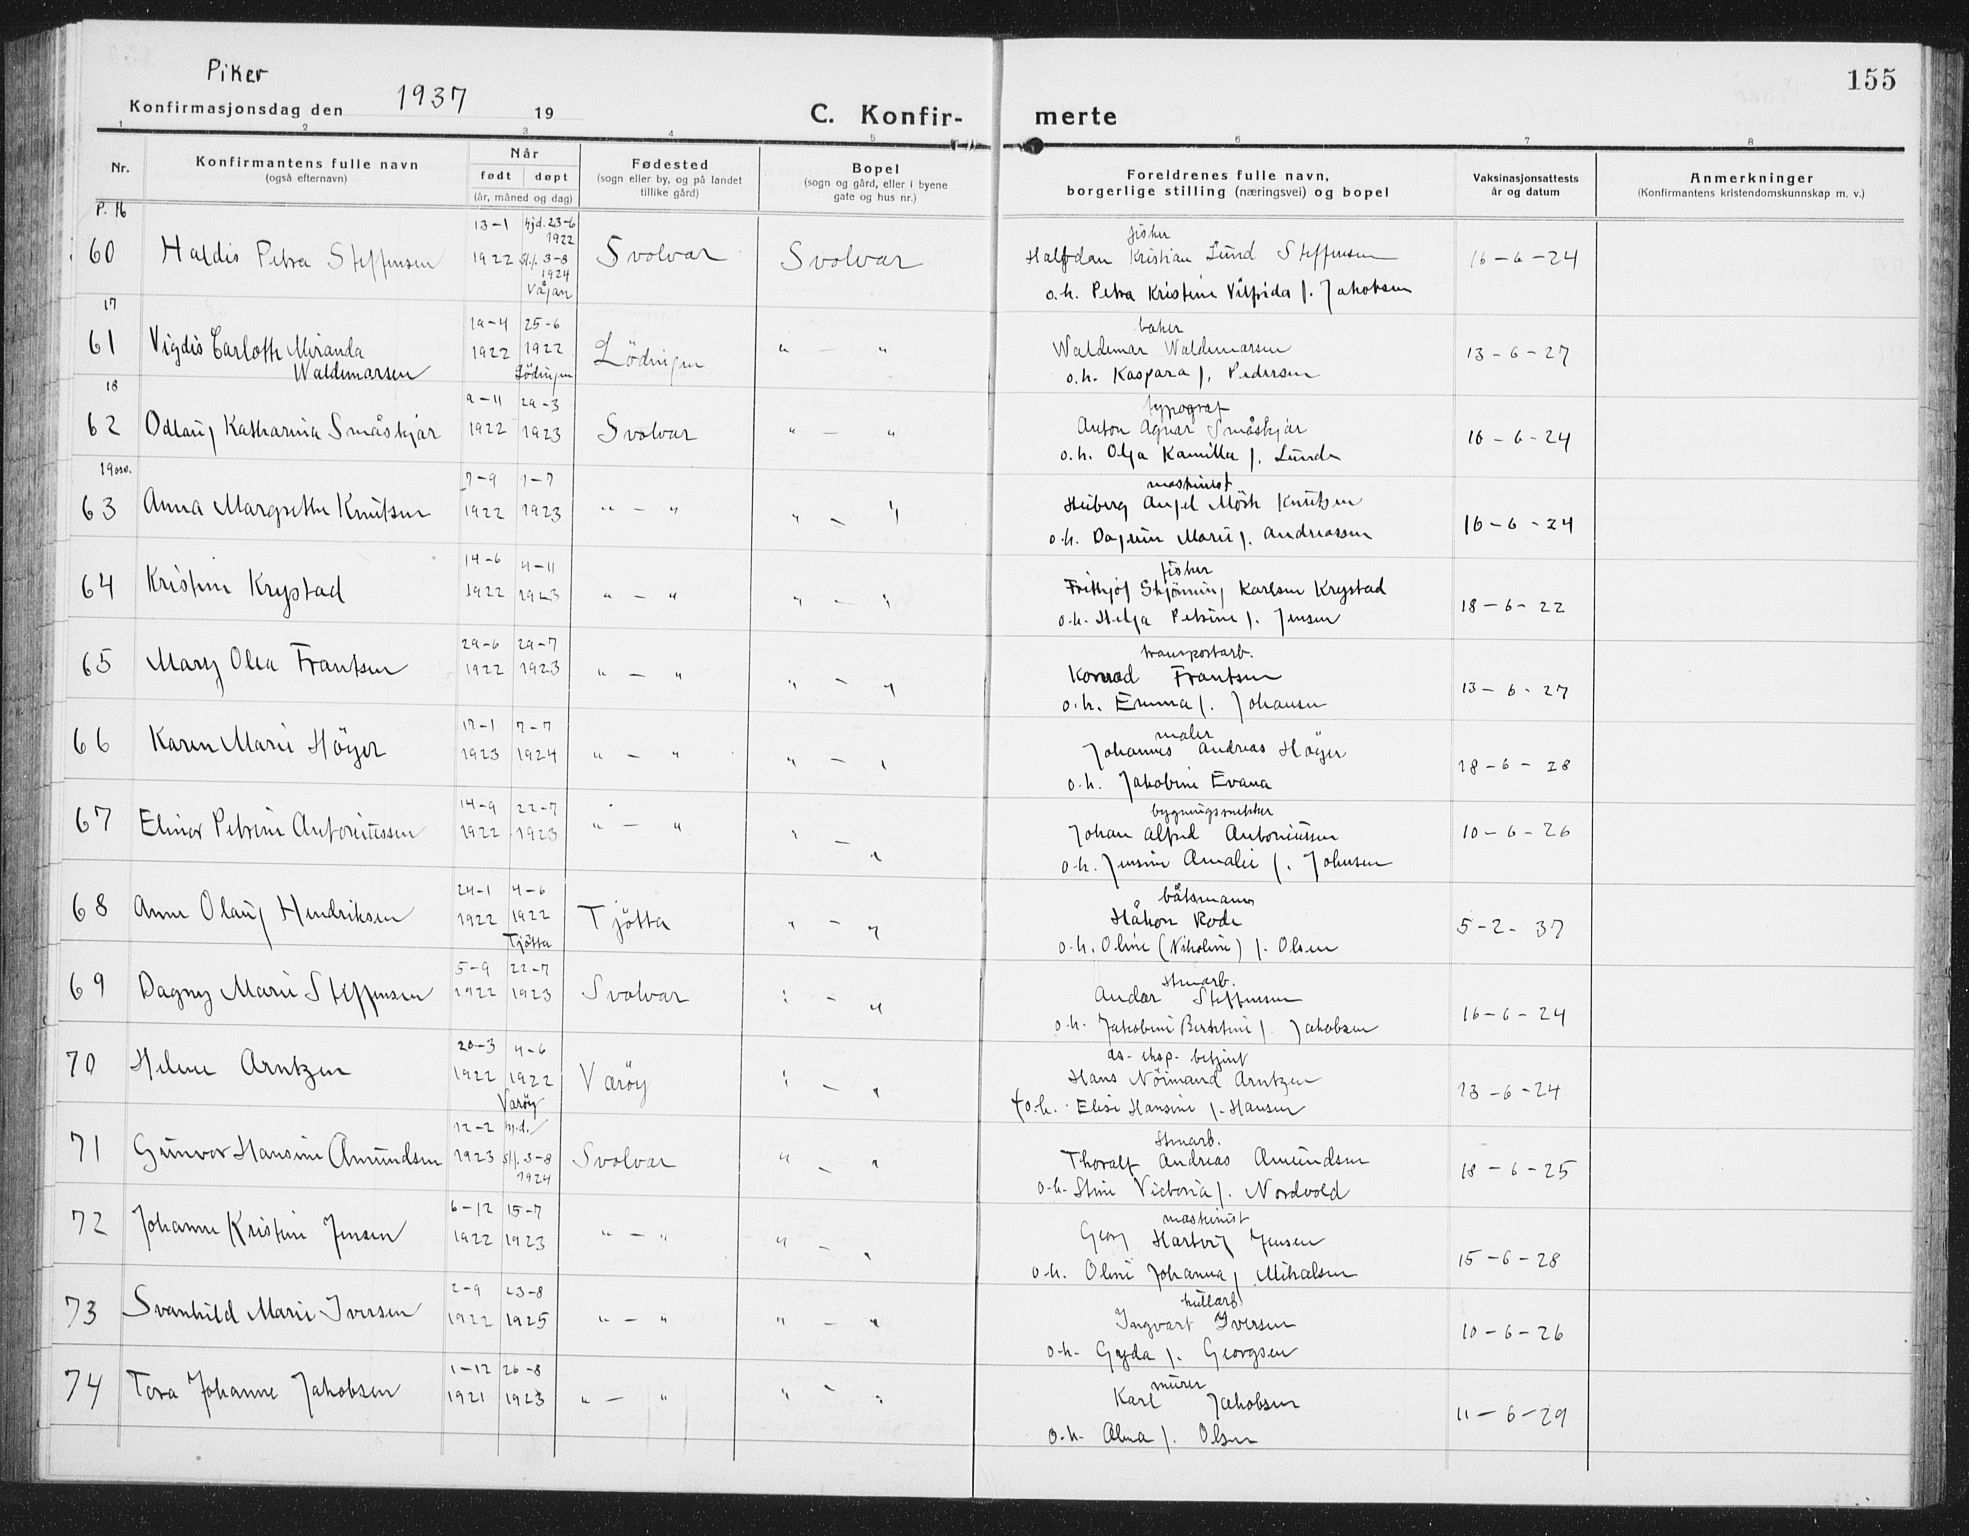 Piker
155
Konfirmasjonsdag den 1937 19
C. Konfir- merte
1 2 3 4 5 6 7 8
Nr.
Konfirmantens fulle navn
(også efternavn)
Når
født døpt
(år, måned og dag)
Fødested
(sogn eller by, og på landet
tillike gård)
Bopel
(sogn og gård, eller i byene
gate og hus nr.)
Foreldrenes fulle navn,
borgerlige stilling (næringsvei) og bopel
Vaksinasjonsattests
år og datum
Anmerkninger
(Konfirmantens kristendomskunnskap m. v.)
P. 16
13-1 hjd. 23-6
1922
fisker
60 Haldis Petra Steffensen 1922 st.f. 3-8 Svolvær Svolvær Halfdan Kristian Lund Steffensen 16-6-24
1924
Vågan
o.h. Petra Kristine Vilfrida f. Jakobsen
17
19-4 25-6
baker
61 Vigdis Carloth Miranda 1922 1922 Lödingen " — " Waldemar Waldemarsen 13-6-27
Waldemarsen Lödingen
o.h. Kaspara f. Pedersen
18
9-11 29-3
typograf
62 Odlaug Katharina Småskjær 1922 1923 Svolvær " — " Anton Agnar Småskjær 16-6-24
o.h. Olga Kamilla f. Lunde
19 osv.
7-9 1-7
maskinist
63 Anna Margrethe Knutsen 1922 1923 " — " " — " Heiberg Angel Mörk Knutsen 16-6-24
o.h. Dagrun Marie f. Andreassen
14-6 4-11
fisker
64 Kristine Krystad 1922 1923 " — " " — " Frithjof Skjönning Karlsen Krystad 18-6-22
o.h. Helga Petrine f. Jensen
29-6 29-7
transportarb.
65 Mary Olea Frantsen 1922 1923 " — " " — " Konrad Frantsen 13-6-27
o.h. Emma f. Johansen
17-1 7-7
maler
66 Karen Marie Höyer 1923 1924 " — " " — " Johannes Andreas Höyer 18-6-28
o.h. Jakobine Evana
14-9 22-7
bygningssnekker
67 Elinor Petrine Antoniussen 1922 1923 " — " " — " Johan Alfred Antoniussen 10-6-26
o.h. Jensine Amalie f. Johnsen
24-1 4-6
båtsmann
68 Anne Olaug Hendriksen 1922 1922 Tjötta " — " Håkon Rode 5-2-37
Tjötta
o.h. Oline (Nikoline) f. Olsen
5-9 22-7
stuarb.
69 Dagny Marie Steffensen 1922 1923 Svolvær " — " Andor Steffensen 16-6-24
o.h. Jakobine Berthine f. Jakobsen
20-3 4-6
ds-eksp. betjent
70 Helene Arntzen 1922 1922 Værøy " — " Hans Nörmand Arntzen 13-6-24
Værøy
o.h. Elise Hansine f. Hansen
12-2 hj.d.
stuarb.
71 Gunvor Hansine Amundsen 1923 st.f. 3-8 Svolvær " — " Thoralf Andreas Amundsen 18-6-25
1924
o.h. Stine Victoria f. Nordvold
6-12 15-7
maskinist
72 Johanne Kristine Jensen 1922 1923 " — " " — " Georg Hartvig Jensen 15-6-28
o.h. Oline Johanna f. Mikalsen
2-9 23-8
kullarb
73 Svanhild Marie Iversen 1922 1925 " — " " — " Ingvart Iversen 10-6-26
o.h. Gyda f. Georgsen
1-12 26-8
murer
74 Tora Johanne Jakobsen 1921 1923 " — " " — " Karl Jakobsen 11-6-29
o.h. Alma f. Olsen